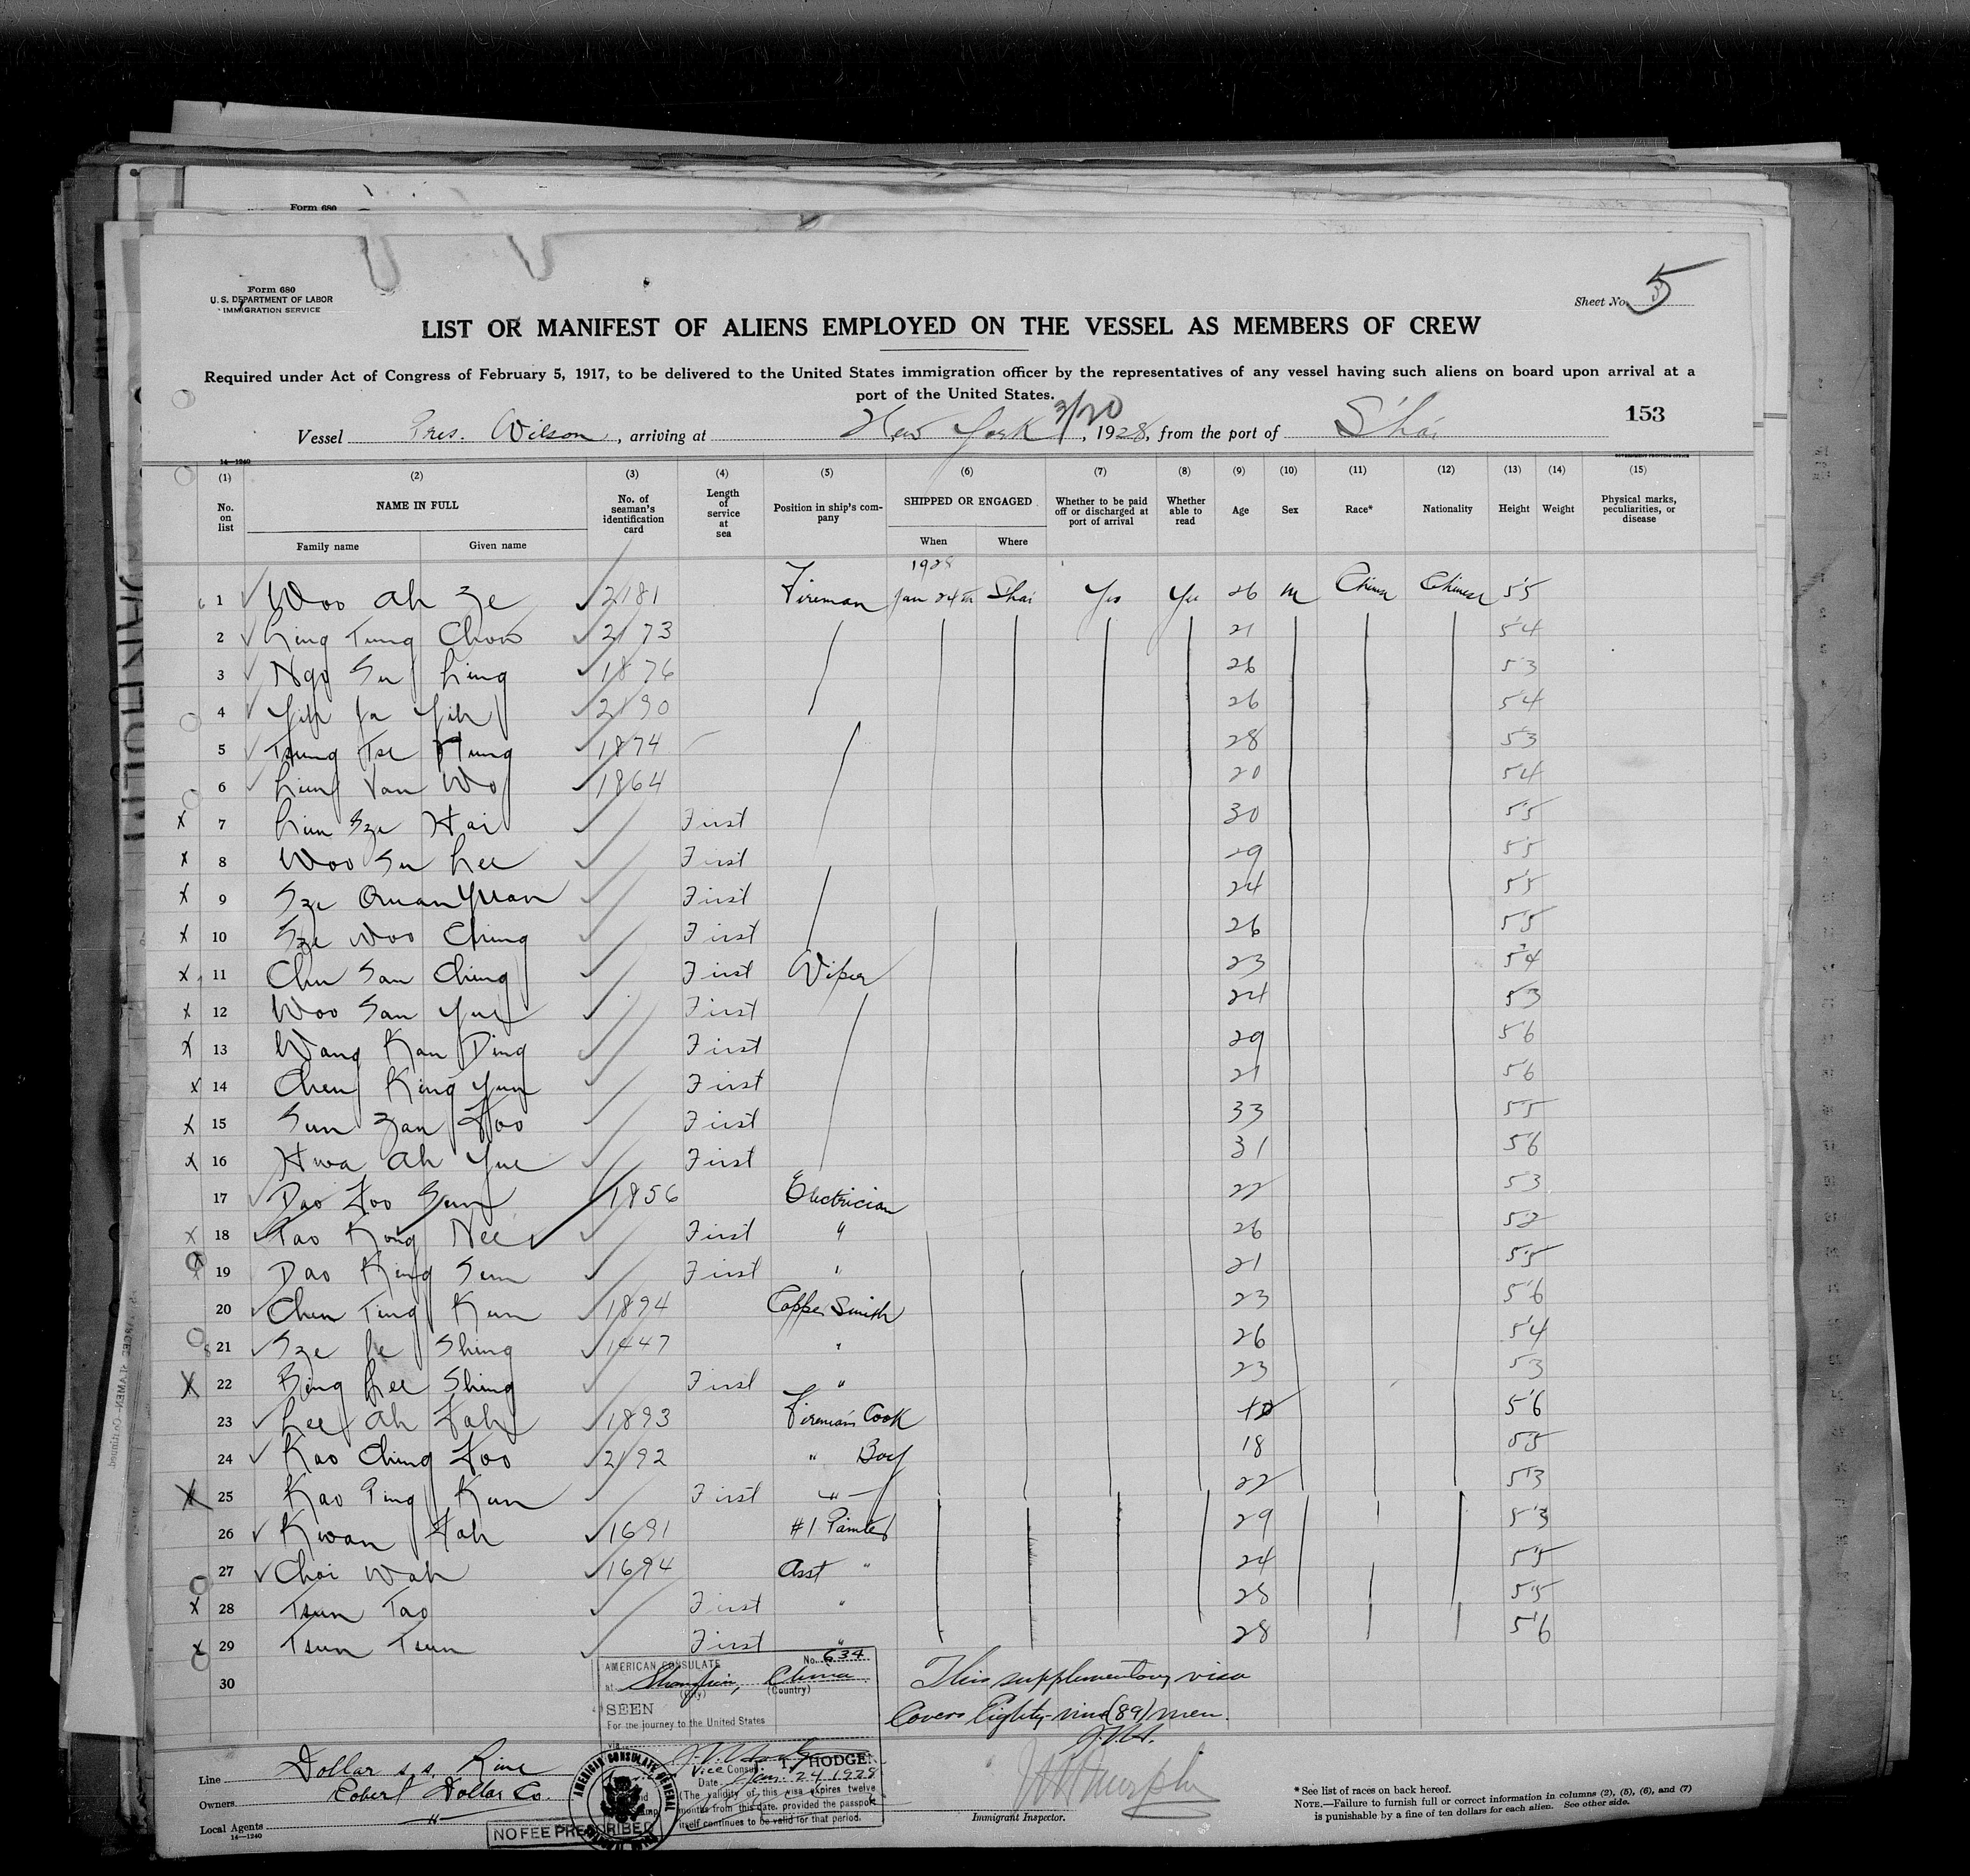 Form 680
Form 680
U. S. DEPARTMENT OF LABOR
IMMIGRATION SERVICE
Sheet No. 5
LIST OR MANIFEST OF ALIENS EMPLOYED ON THE VESSEL AS MEMBERS OF CREW
Required under Act of Congress of February 5, 1917, to be delivered to the United States immigration officer by the representatives of any vessel having such aliens on board upon arrival at a
port of the United States.
Vessel Pres. Wilson, arriving at New York 3/20, 1928, from the port of S'hai 153
14—1240
(1) (2) (3) (4) (5) (6) (7) (8) (9) (10) (11) (12) (13) (14) (15)
No. on list NAME IN FULL No. of seaman's identification card Length of service at sea Position in ship's company SHIPPED OR ENGAGED Whether to be paid off or discharged at port of arrival Whether able to read Age Sex Race* Nationality Height Weight Physical marks, peculiarities, or disease
Family name Given name When Where
1928
1 Woo Ah Ze 2181 Fireman Jan 24th Shai Yes Yes 26 M Chinese Chinese 5'5
2 Ling Tung Chow 2173 21 5'4
3 Ngo Su Ling 1876 26 5'3
4 Yih Ya Yih 2190 26 5'4
5 Tsung Tse 1874 28 5'3
6 Van Wo 1864 20 5'4
7 Sze Hai First 30 5'5
8 Woo Su Lee First 29 5'5
9 Sze Quan Yuan First 24 5'5
10 Sze Woo Ching First 26 5'5
11 Chu San Ching First Wiper 23 5'4
12 Woo San Yue First 24 5'3
13 Wang Kan Ding First 29 5'6
14 Chen King Yun First 21 5'6
15 Sun Zan Foo First 33 5'5
16 Hwa Ah Yue First 31 5'6
17 Dao Foo Sun 1856 Electrician 22 5'3
18 Tao Kong Nee First " 26 5'2
19 Dao King Sun First " 21 5'5
20 Chun Ting Kun 1894 Copper Smith 23 5'6
21 Sze Je Shing 1447 " 26 5'4
22 Bing Lee Shing First " 23 5'3
23 Lee Ah Fah 1893 Fireman's Cook 5'6
24 Kao Ching Foo 2192 " Boy 18 5'5
25 Kao Ping Kun First " 22 5'3
26 Kwan Fah 1691 #1 Painter 29 5'3
27 Choi Wah 1694 Asst " 24 5'5
28 Tsun Tao First " 28 5'5
29 Tsun Tsun First " 28 5'6
30
AMERICAN CONSULATE No. 634
at Shanghai, China
(City) (Country)
SEEN
For the journey to the United States
via
Vice Consul HODGE
Date Jan. 24 1928
(The validity of this visa expires twelve
months from this date, provided the passport
itself continues to be valid for that period.
AMERICAN CONSULATE GENERAL
NO FEE PRESCRIBED
This supplementary visa
Covers Eighty-nine (89) men.
Line Dollar S.S. Line
Owners Robert Dollar Co.
Local Agents "
14—1240
Murphy
Immigrant Inspector.
* See list of races on back hereof.
NOTE.—Failure to furnish full or correct information in columns (2), (5), (6), and (7)
is punishable by a fine of ten dollars for each alien. See other side.